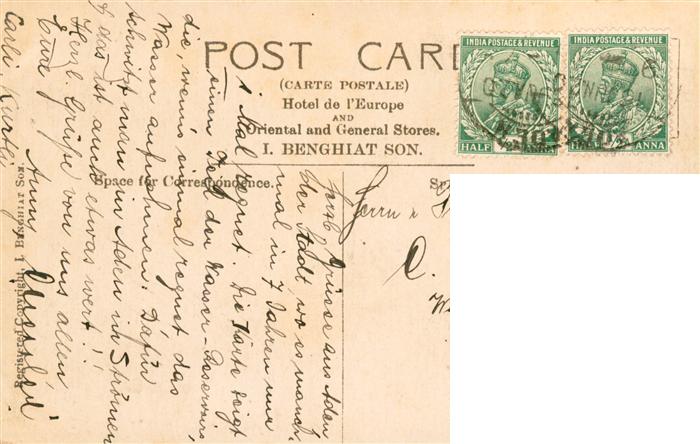 POST CARD
(CARTE POSTALE)
Hotel de l'Europe
AND
Oriental and General Stores.
I. BENGHIAT SON.
Space for Correspondence.
INDIA POSTAGE & REVENUE
HALF
INDIA POSTAGE & REVENUE
ANNA
ADEN
Registered Copyright, I. BENGHIAT SON.
Herzl. Grüsse aus Aden
der Stadt wo es manch-
mal in 7 Jahren nur
1 Mal regnet. Die Karte zeigt
einen Teil der Wasser-Reservoirs,
die, wenns einmal regnet das
Wasser aufnehmen. Dafür
schwitzt man in Aden in Strömen
& das ist auch etwas wert!!
Herzl. Grüsse von uns allen
Eure
Anni
Carli, Kurtli
Herrn